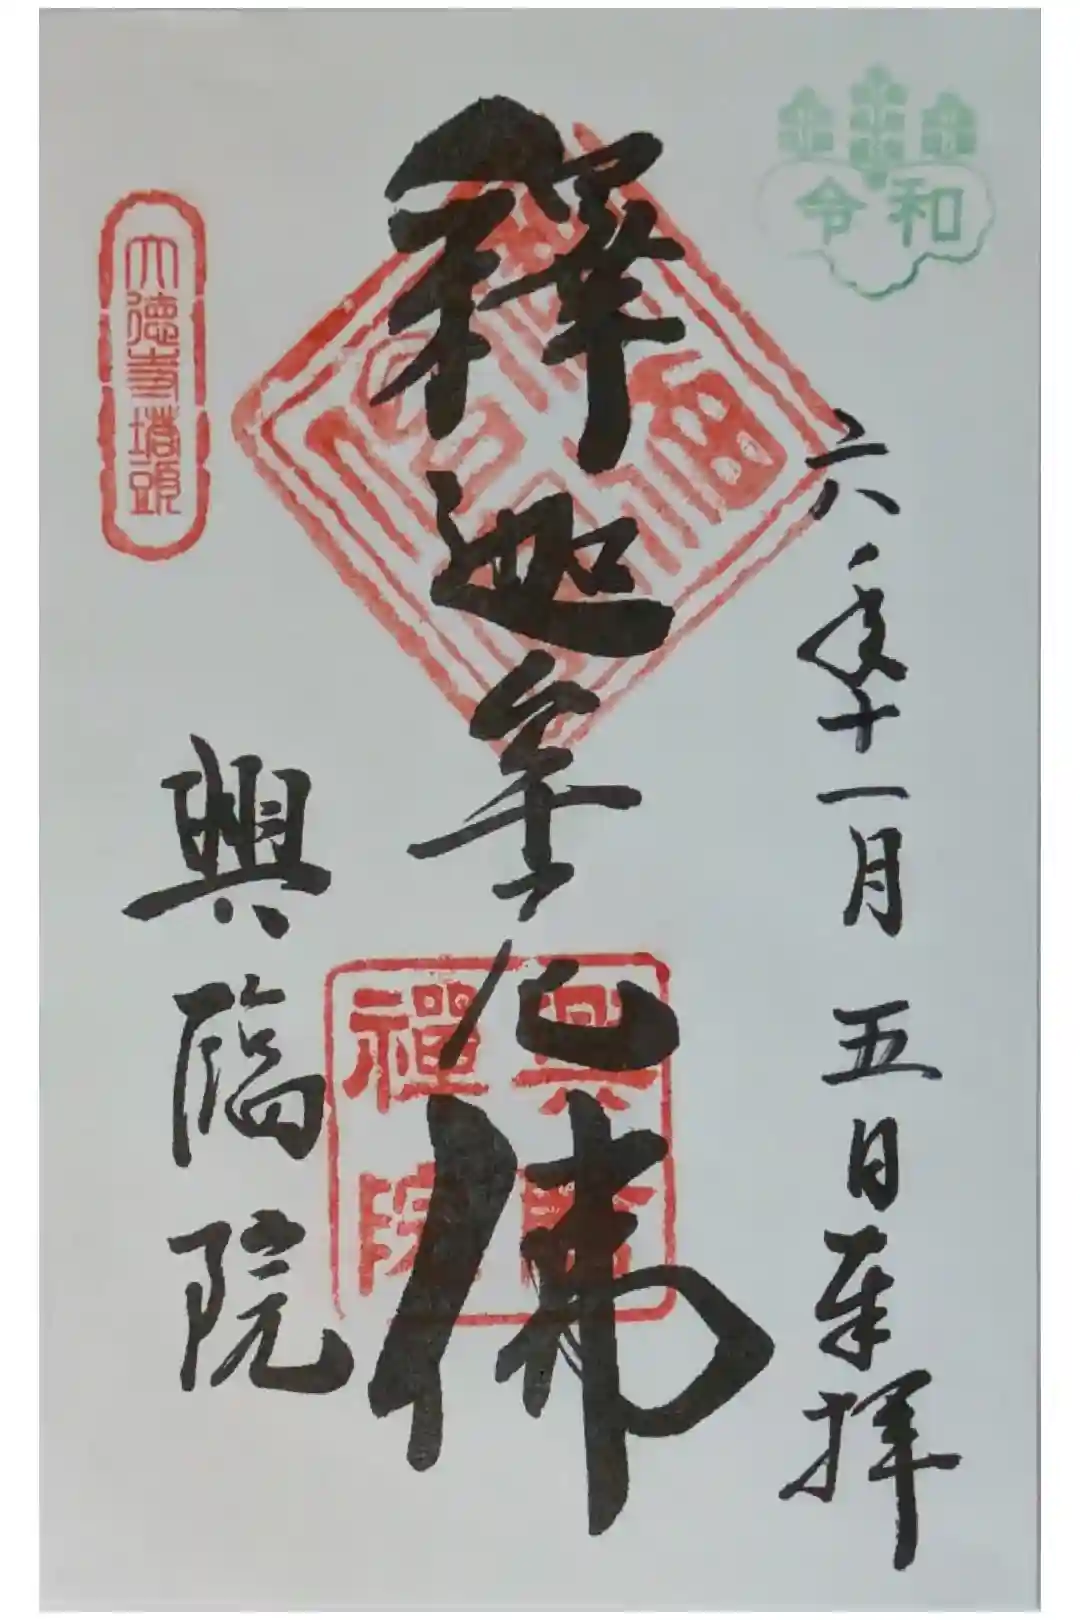 令和
六年十一月五日奉拝
釋迦牟尼佛
興臨
禪院
大徳寺塔頭
興臨院